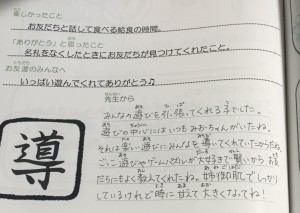 楽しかったこと
お友だちと話して食べる給食の時間。
「ありがとう」と思ったこと
名札をなくしたときにお友だちが見つけてくれたこと。
お友達のみんなへ
いっぱい遊んでくれてありがとう♪
先生から
みんなの遊びを引っ張ってくれる子でした。
遊びの中心にはいつもみおちゃんがいたね。
それは楽しい遊びにみんなを導いてくれていたからだね。
ごっこ遊びやゲームなどが大好きで賢いからお友
だちにもよく教えてくれたね。姉御肌でしっかり
しているけれど時に甘えて大きくなってね!
導